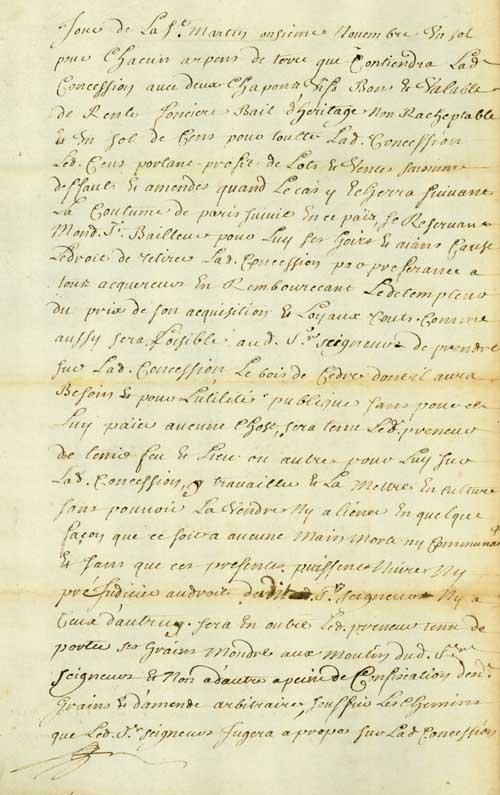 Jour de La St. Martin onzieme Novembre un sol
pour Chacun arpens de terre que Contiendra Lad.
Concession avec deux Chapons vifs Bons et Valable
de Rente fonciere Bail d'heritage Non Racheptable
et un sol de Cens pour toutte Lad. Concession
Led. Cens portant profit de Lots et Ventes saisinne
deffauts et amendes quand Le cas y Echerra suivant
La Coutume de paris suivie en ce païs, se Reservant
Mond. Sr. Bailleur pour Luy ses hoirs et aians Cause
Le droit de retirer Lad. Concession par preferance a
tout acquereur En Rembourceant Ledetempteur
du prix de son acquisition et Loyaux Couts. Comme
aussy sera Loisible aud. Sr. seigneur de prendre
sur Lad. Concession Le bois de Cedre dont il aura
Besoin et pour L'utilité publique sans pour ce
Luy païer aucune Chose, sera tenu Led. preneur
de tenir feu et Lieu ou autre pour Luy sur
Lad. Concession, y travailler et La Mettre En culture
sans pouvoir La Vendre Ny aliener En quelque
façon que ce soit a aucune Main Morte ny Communau
et sans que ces presente puissent Nuire Ny
préjudicier au droit dudit Sr. seigneur Ny a
Ceux d'autruy. sera En outre Led. preneur tenu de
porter ses Grains Moudre aux Moulin dud. Sr.
seigneur et Non a d'autre a peine de Confiscation desd.
Grains et d'amende arbitraire, souffrir Les Chemins
que Led. Sr. seigneur Jugera a propos sur Lad. Concession